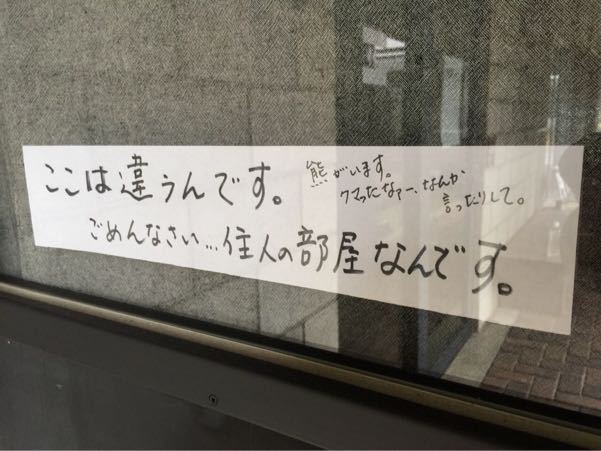 ここは違うんです。
熊がいます。
クマったなァー、なんか
言ったりして。
ごめんなさい…住人の部屋なんです。